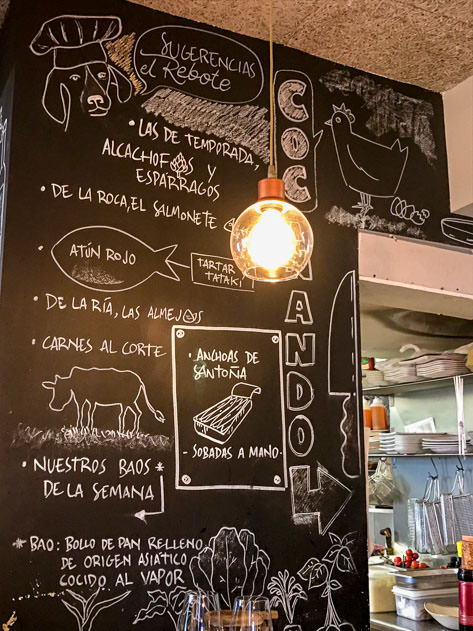 SUGERENCIAS
el Rebote
• LAS DE TEMPORADA,
ALCACHOFAS Y
ESPÁRRAGOS
• DE LA ROCA, EL SALMONETE
ATÚN ROJO
TARTAR
TATAKI
• DE LA RÍA, LAS ALMEJAS
• CARNES AL CORTE
• ANCHOAS DE
SANTOÑA
- SOBADAS A MANO -
• NUESTROS BAOS *
DE LA SEMANA
* BAO: BOLLO DE PAN RELLENO
DE ORIGEN ASIÁTICO
COCIDO AL VAPOR
COCINANDO